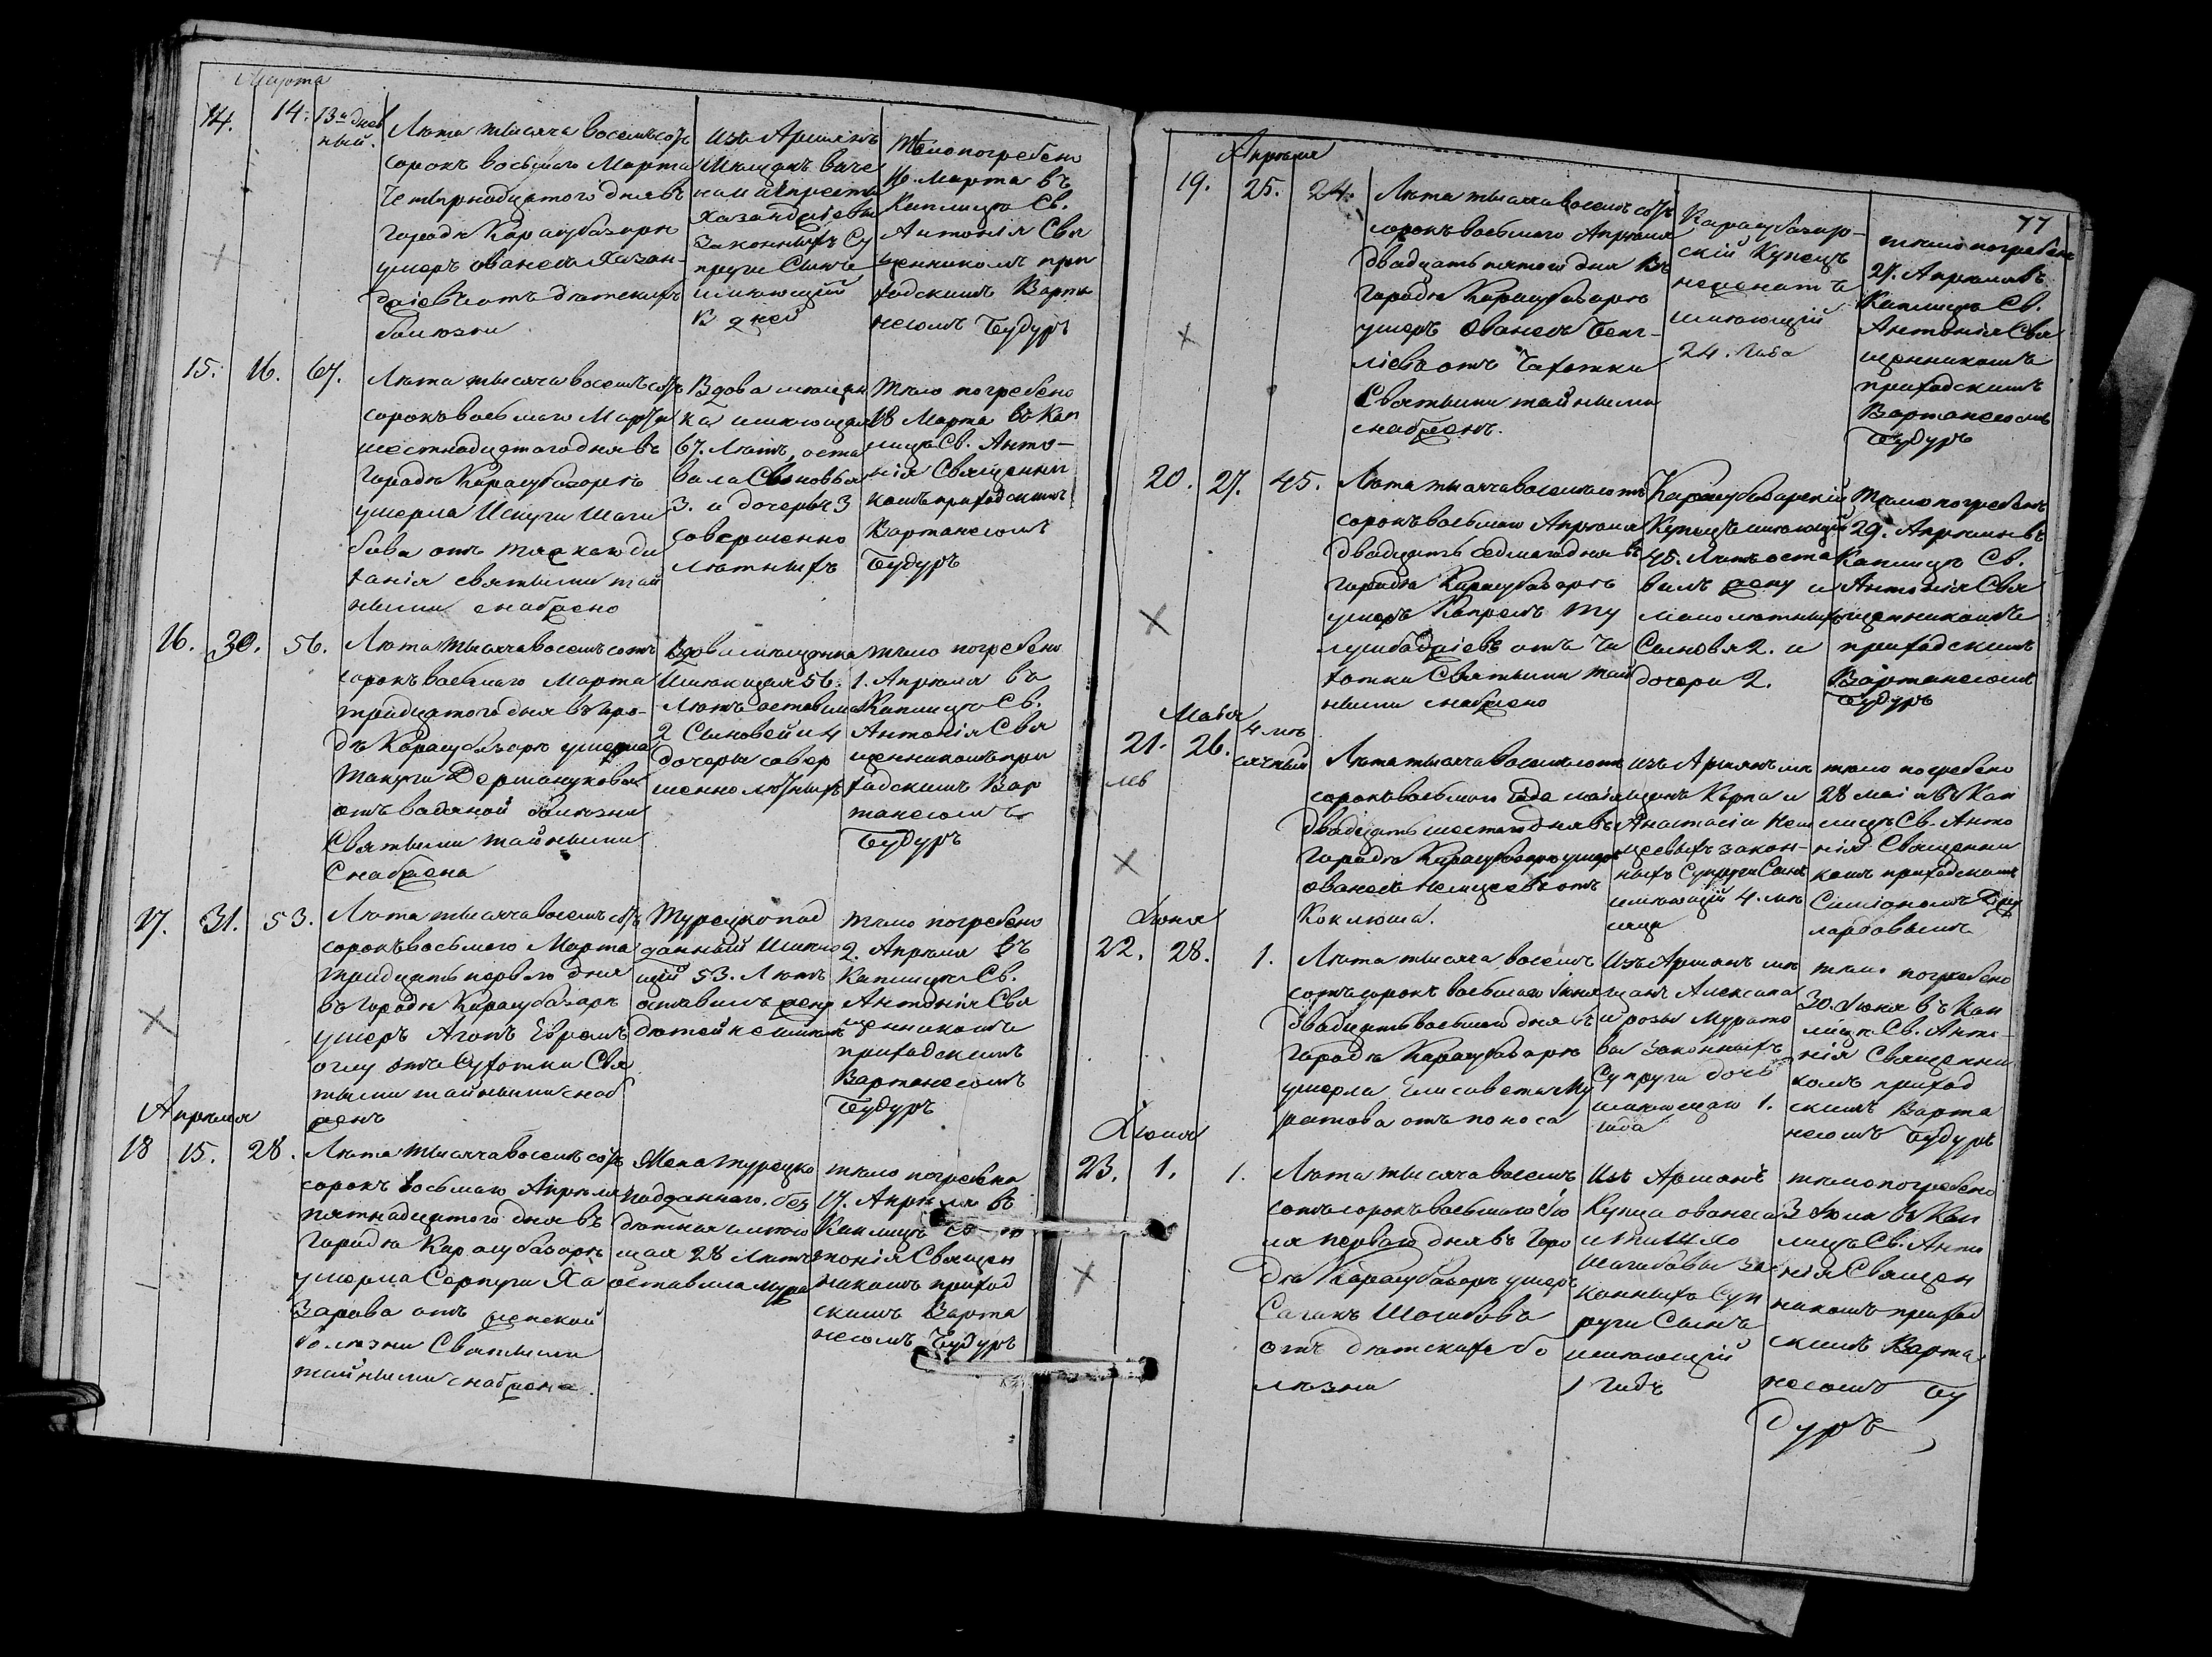 Марта
14.
14.
13и днев
ный.
Лѣта тысяча восемьсотъ
сорокъ восьмаго Марта
Четырнадцатого дня въ
городѣ Карасубазарѣ
умеръ Ованесъ Хазан-
джіевъ отъ дѣтскихъ
болѣзни
Изъ Армянъ
Мещанъ
Хазанджіевы
Законныхъ Су
пруги Сынъ
имѣющій
13 дней
Тѣло погребено
16. Марта въ
Каплицѣ Св.
Антонія Свя
щенникомъ при
ходскимъ Варта
несомъ Будуръ
15.
16.
67.
Лѣта тысяча восемьсотъ
сорокъ восьмаго Марта
шестнадцатого дня въ
городѣ Карасубазарѣ
умерла Искуги Шаги
бова отъ
ханія святыми тай
ными снабжено
Вдова мещан
ка имѣющая
67. Лѣтъ, оста
вила Сыновья
3. и дочерьи 3
совершенно
лѣтныхъ
Тѣло погребено
18 Марта въ Кап
лицѣ Св. Анто-
нія Священни
комъ приходскимъ
Вартанесомъ
Будуръ
16.
30.
56.
Лѣта тысяча восемьсотъ
сорокъ восьмаго Марта
тридцатого дня въ горо-
дѣ Карасубазарѣ умерла
Такуги Дерманукова
отъ водяной болѣзни
Святыми тайными
Снабжена
Вдова мещанка
Имѣющая 56.
Лѣтъ оставила
2 Сыновей и 4
дочеры совер
шенно лѣтныхъ
тѣло погребено
1. Апрѣля въ
Каплицѣ Св.
Антонія Свя
щенникомъ при
ходскимъ Вар
танесомъ
Будуръ
17.
31.
53.
Лѣта тысяча восемьсотъ
сорокъ восьмаго Марта
тридцать перваго дня
въ городѣ Карасубазарѣ
умеръ Агопъ Ефремъ
оглу отъ Сухотки Свя
тыми тайными снаб
женъ
Турецкопод
данный Имѣю
щій 53. Лѣтъ
оставилъ жену
дѣтей не имѣлъ
тѣло погребено
2. Апрѣля въ
Каплицѣ Св.
Антонія Свя
щенникомъ
приходскимъ
Вартанесомъ
Будуръ
Апрѣля
18
15.
28.
Лѣта тысяча восемьсотъ
сорокъ восьмаго Апрѣля
пятнадцатого дня въ
городѣ Карасубазарѣ
умерла Сарпуги Ха
зарова отъ женской
болѣзни Святыми
тайными снабжена.
Жена турецко
подданнаго. без
дѣтная имѣю
щая 28 Лѣтъ
оставила мужа
тѣло погребена
17. Апрѣля въ
Каплицѣ
тонія Священ
никомъ приход
скимъ Варта
несомъ Будуръ
77
Апрѣля
19.
25.
24.
Лѣта тысяча восемьсотъ
сорокъ восьмаго Апрѣля
двадцать пятого дня въ
городѣ Карасубазарѣ
умеръ Ованесъ
ліевъ отъ Чахотки
Святыми тайными
снабженъ.
Карасубазар-
скій Купецъ
неженатъ
имѣющій
24. года
тѣло погребено
27. Апрѣля въ
Каплицѣ Св.
Антонія Свя
щенникомъ
приходскимъ
Вартанесомъ
Будуръ
20.
27.
45.
Лѣта тысяча восемьсотъ
сорокъ восьмаго Апрѣля
двадцать седмаго дня въ
городѣ Карасубазарѣ
умеръ Капрелъ Ту
отъ Ча
хотки Святыми тай
ными снабжено
Карасубазарскій
Купецъ имѣющій
45. Лѣтъ оста
вилъ жену и
малолѣтныхъ
Сыновя 2. и
дочери 2.
Тѣло погребенъ
29. Апрѣля въ
Каплицѣ Св.
Антонія Свя
щенникомъ
приходскимъ
Вартанесомъ
Будуръ
Майя
21.
26.
4 мѣ
сячный
Лѣта тысяча восемьсотъ
сорокъ восьмаго года маія
двадцать шестого дня въ
городѣ Карасубазарѣ умеръ
Ованесъ Немцевъ отъ
Коклюша.
изъ Армянъ мѣ
щанъ Карпа и
Анастасіи Нем
цевыхъ закон-
ныхъ Супруги Сынъ
имѣющій 4. мѣ
сяца
тѣло погребено
28 маія въ Кап
лицѣ Св. Анто
нія Священни
комъ приходскимъ
Симіономъ
Іюня
22.
28.
1.
Лѣта тысяча восемь
сотъ сорокъ восьмаго Іюня
двадцать восьмаго дня въ
городѣ Карасубазарѣ
умерла Елисавета Му
ратова отъ поноса
Изъ Армянъ мѣ
щанъ Алексана
и розы Мурато
вы Законныхъ
Супруги дочь
имѣющаю 1.
года
тѣло погребено
30. Іюня въ Кап
лицѣ Св. Анто-
нія Священни
комъ приход
скимъ Варта
несомъ Будуръ
Іюля
23.
1.
1.
Лѣта тысяча восемь
сотъ сорокъ восьмаго Ію
ля перваго дня въ горо
дѣ Карасубазарѣ умеръ
Сагакъ Шагибовъ
отъ дѣтскихъ бо
лѣзни
Изъ Армянъ
Купца Ованеса
Шагибовы за
конныхъ Суп
руги Сынъ
имѣющій
1 годъ
тѣло погребено
3 Іюля въ Кап
лицѣ Св. Анто
нія Священ
никомъ приход
скимъ Варта
несомъ Бу
дуръ